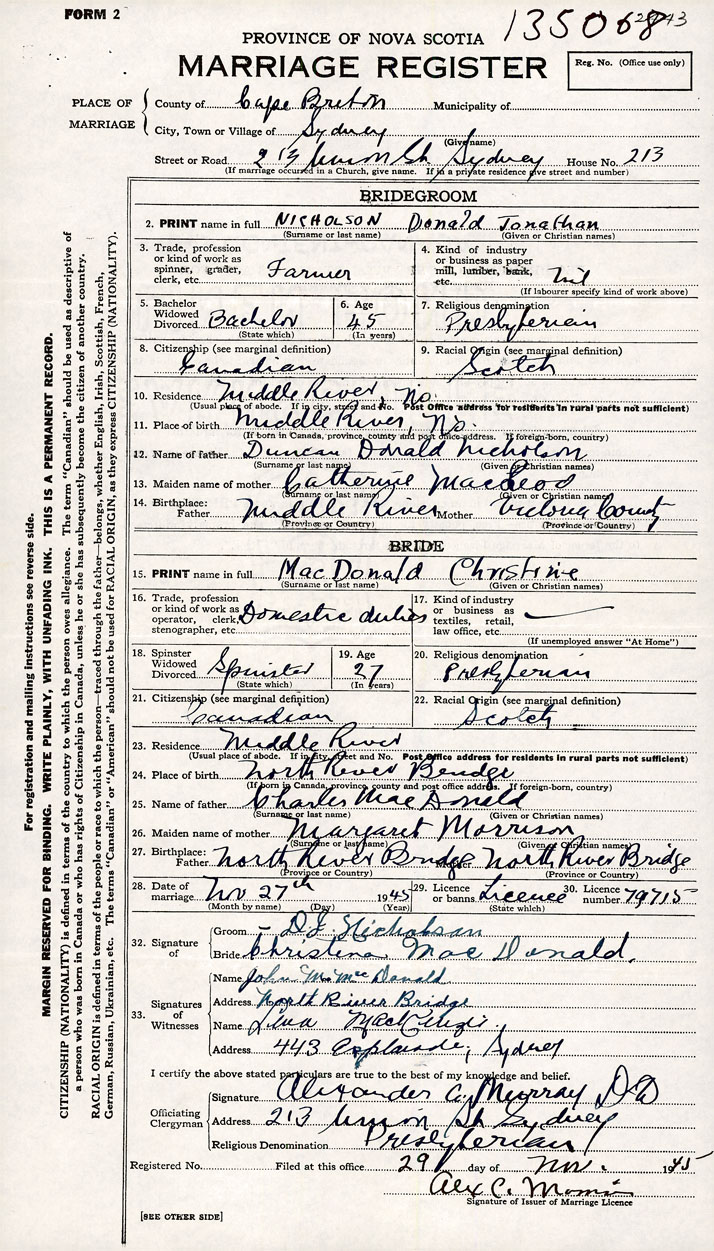 FORM 2
135068
PROVINCE OF NOVA SCOTIA
MARRIAGE REGISTER
Reg. No. (Office use only)
PLACE OF MARRIAGE
County of Cape Breton Municipality of
City, Town or Village of Sydney
(Give name)
Street or Road 213 Union St Sydney House No. 213
(If marriage occurred in a Church, give name. If in a private residence give street and number)
BRIDEGROOM
2. PRINT name in full NICHOLSON Donald Jonathan
(Surname or last name) (Given or Christian names)
3. Trade, profession or kind of work as spinner, grader, clerk, etc. Farmer
4. Kind of industry or business as paper mill, lumber, bank, etc. Nil
(If labourer specify kind of work above)
5. Bachelor Widowed Divorced Bachelor
(State which)
6. Age 45
(In years)
7. Religious denomination Presbyterian
8. Citizenship (see marginal definition) Canadian
9. Racial Origin (see marginal definition) Scotch
10. Residence Middle River, No.
(Usual place of abode. If in city, street and No. Post Office address for residents in rural parts not sufficient)
11. Place of birth Middle River, No.
(If born in Canada, province, county and post office address. If foreign-born, country)
12. Name of father Duncan Donald Nicholson
(Surname or last name) (Given or Christian names)
13. Maiden name of mother Catherine MacLeod
(Surname or last name) (Given or Christian names)
14. Birthplace: Father Middle River Mother Victoria County
(Province or Country) (Province or Country)
BRIDE
15. PRINT name in full MacDonald Christine
(Surname or last name) (Given or Christian names)
16. Trade, profession or kind of work as operator, clerk, stenographer, etc. Domestic duties
17. Kind of industry or business as textiles, retail, law office, etc.
(If unemployed answer "At Home")
18. Spinster Widowed Divorced Spinster
(State which)
19. Age 27
(In years)
20. Religious denomination Presbyterian
21. Citizenship (see marginal definition) Canadian
22. Racial Origin (see marginal definition) Scotch
23. Residence Middle River
(Usual place of abode. If in city, street and No. Post Office address for residents in rural parts not sufficient)
24. Place of birth North River Bridge
(If born in Canada, province, county and post office address. If foreign-born, country)
25. Name of father Charles MacDonald
(Surname or last name) (Given or Christian names)
26. Maiden name of mother Margaret Morrison
(Surname or last name) (Given or Christian names)
27. Birthplace: Father North River Bridge Mother North River Bridge
(Province or Country) (Province or Country)
28. Date of marriage Nov 27th 1945
(Month by name) (Day) (Year)
29. Licence or banns Licence
(State which)
30. Licence number 79715
32. Signature of
Groom D.J. Nicholson
Bride Christina Mac Donald.
33. Signatures of Witnesses
Name John M. McDonald
Address North River Bridge
Name Lina MacKenzie
Address 443 Esplanade, Sydney
I certify the above stated particulars are true to the best of my knowledge and belief.
Officiating Clergyman
Signature Alexander C. Murray DD
Address 213 Union St Sydney
Religious Denomination Presbyterian
Registered No. Filed at this office 29 day of Nov. 1945
Alex C.
Signature of Issuer of Marriage Licence
[SEE OTHER SIDE]
For registration and mailing instructions see reverse side.
MARGIN RESERVED FOR BINDING. WRITE PLAINLY, WITH UNFADING INK. THIS IS A PERMANENT RECORD.
CITIZENSHIP (NATIONALITY) is defined in terms of the country to which the person owes allegiance. The term "Canadian" should be used as descriptive of
a person who was born in Canada or who has rights of Citizenship in Canada, unless he or she has subsequently become the citizen of another country.
RACIAL ORIGIN is defined in terms of the people or race to which the person—traced through the father—belongs, whether English, Irish, Scottish, French,
German, Russian, Ukrainian, etc. The terms "Canadian" or "American" should not be used for RACIAL ORIGIN, as they express CITIZENSHIP (NATIONALITY).